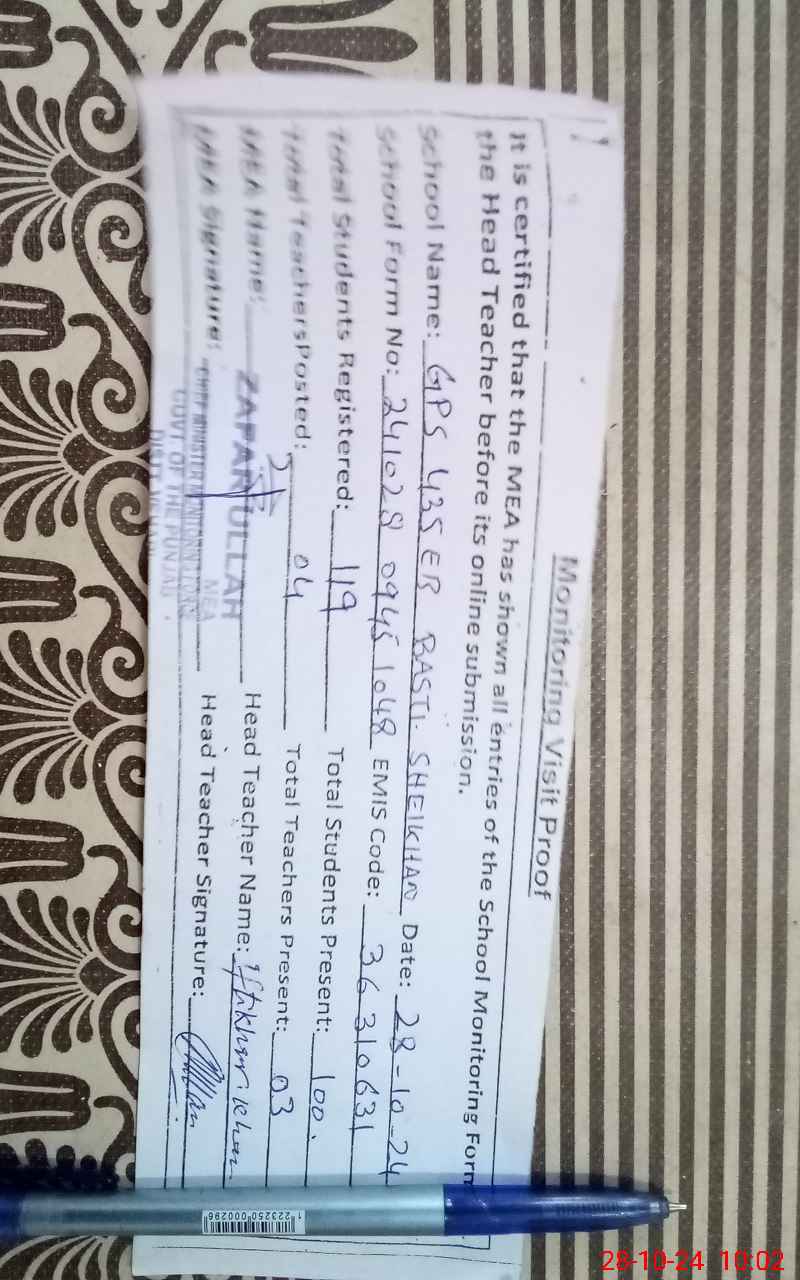 Monitoring Visit Proof
It is certified that the MEA has shown all entries of the School Monitoring Form
the Head Teacher before its online submission.
School Name: GPS 435 EB BASTI SHEIKHAN Date: 28-10-24
School Form No: 241028 0945 1048 EMIS Code: 36310631
Total Students Registered: 119 Total Students Present: 100.
Total TeachersPosted: 04 Total Teachers Present: 03
MEA Name: ZAFAR ULLAH Head Teacher Name: Iftikhar khan
MEA Signature: Head Teacher Signature:
MEA
CHIEF MINISTER MONITORING FORCE
GOVT. OF THE PUNJAB
1223250 000296
28-10-24 10:02